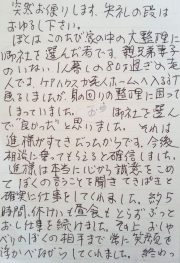 突然お便りします、失礼の段は
おゆるし下さい。
ぼくはこのたび家の中の大整理に
御社を選んだ者です。親兄弟妻子
のいない1人暮しの80才過ぎの老
人です。ケアハウスか老人ホームへ入る
覚悟をしましたが、身の回りの整理に困って
しまっていました。 御社を選ん
で"良かった"と思いました。それは
進様がすてきだったからです。今後
相談に乗ってもらえると確信しました。
進様は本当に心から誠意をこめ
てぼくの言うことを聞きてきぱきと
確実に仕事をしてくれました。約5
時間、休けいも昼食もとらずぶっと
おし仕事を続けました。その上おしゃ
べりのぼくの相手まで常に笑顔を
浮かべながらしてくれました。終わっ